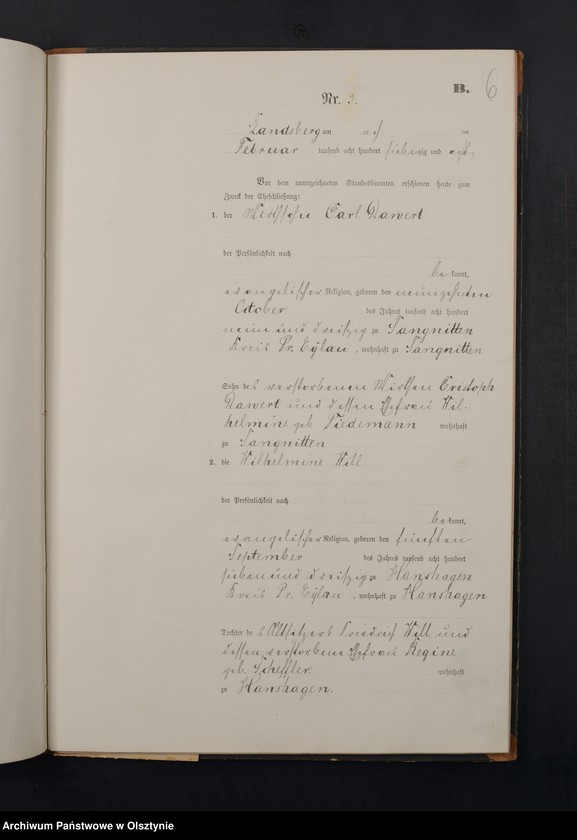 B. 6
Nr. 3.
Landsberg am acht ten
Februar tausend acht hundert siebenzig und acht
Vor dem unterzeichneten Standesbeamten erschienen heute zum
Zweck der Eheschließung:
1. der Wirthsohn Carl Dawert
der Persönlichkeit nach
be kannt,
evangelischer Religion, geboren den neunzehnten
October des Jahres tausend acht hundert
neun und dreißig zu Sangnitten
Kreis Pr. Eylau, wohnhaft zu Sangnitten
Sohn des verstorbenen Wirthen Cristoph
Dawert und dessen Ehefrau Wil-
helmine geb Tiedemann wohnhaft
zu Sangnitten
2. die Wilhelmine Will
der Persönlichkeit nach
be kannt,
evangelischer Religion, geboren den fünften
September des Jahres tausend acht hundert
sieben und dreißig zu Hanshagen
Kreis Pr. Eylau, wohnhaft zu Hanshagen
Tochter des Altsitzers Friedrich Will und
dessen verstorbene Ehefrau Regine
geb. Scheffler. wohnhaft
zu Hanshagen.
Archiwum Państwowe w Olsztynie